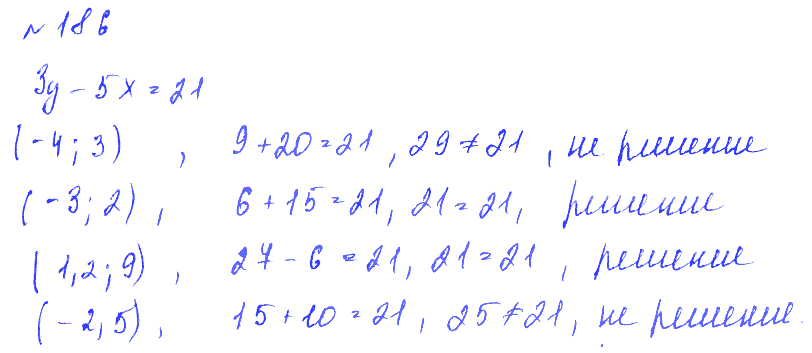 №186
3y - 5x = 21
(-4; 3) , 9 + 20 = 21 , 29 ≠ 21 , не решение
(-3; 2) , 6 + 15 = 21, 21 = 21, решение
(1,2; 9) , 27 - 6 = 21, 21 = 21 , решение
(-2, 5) , 15 + 10 = 21, 25 ≠ 21, не решение.